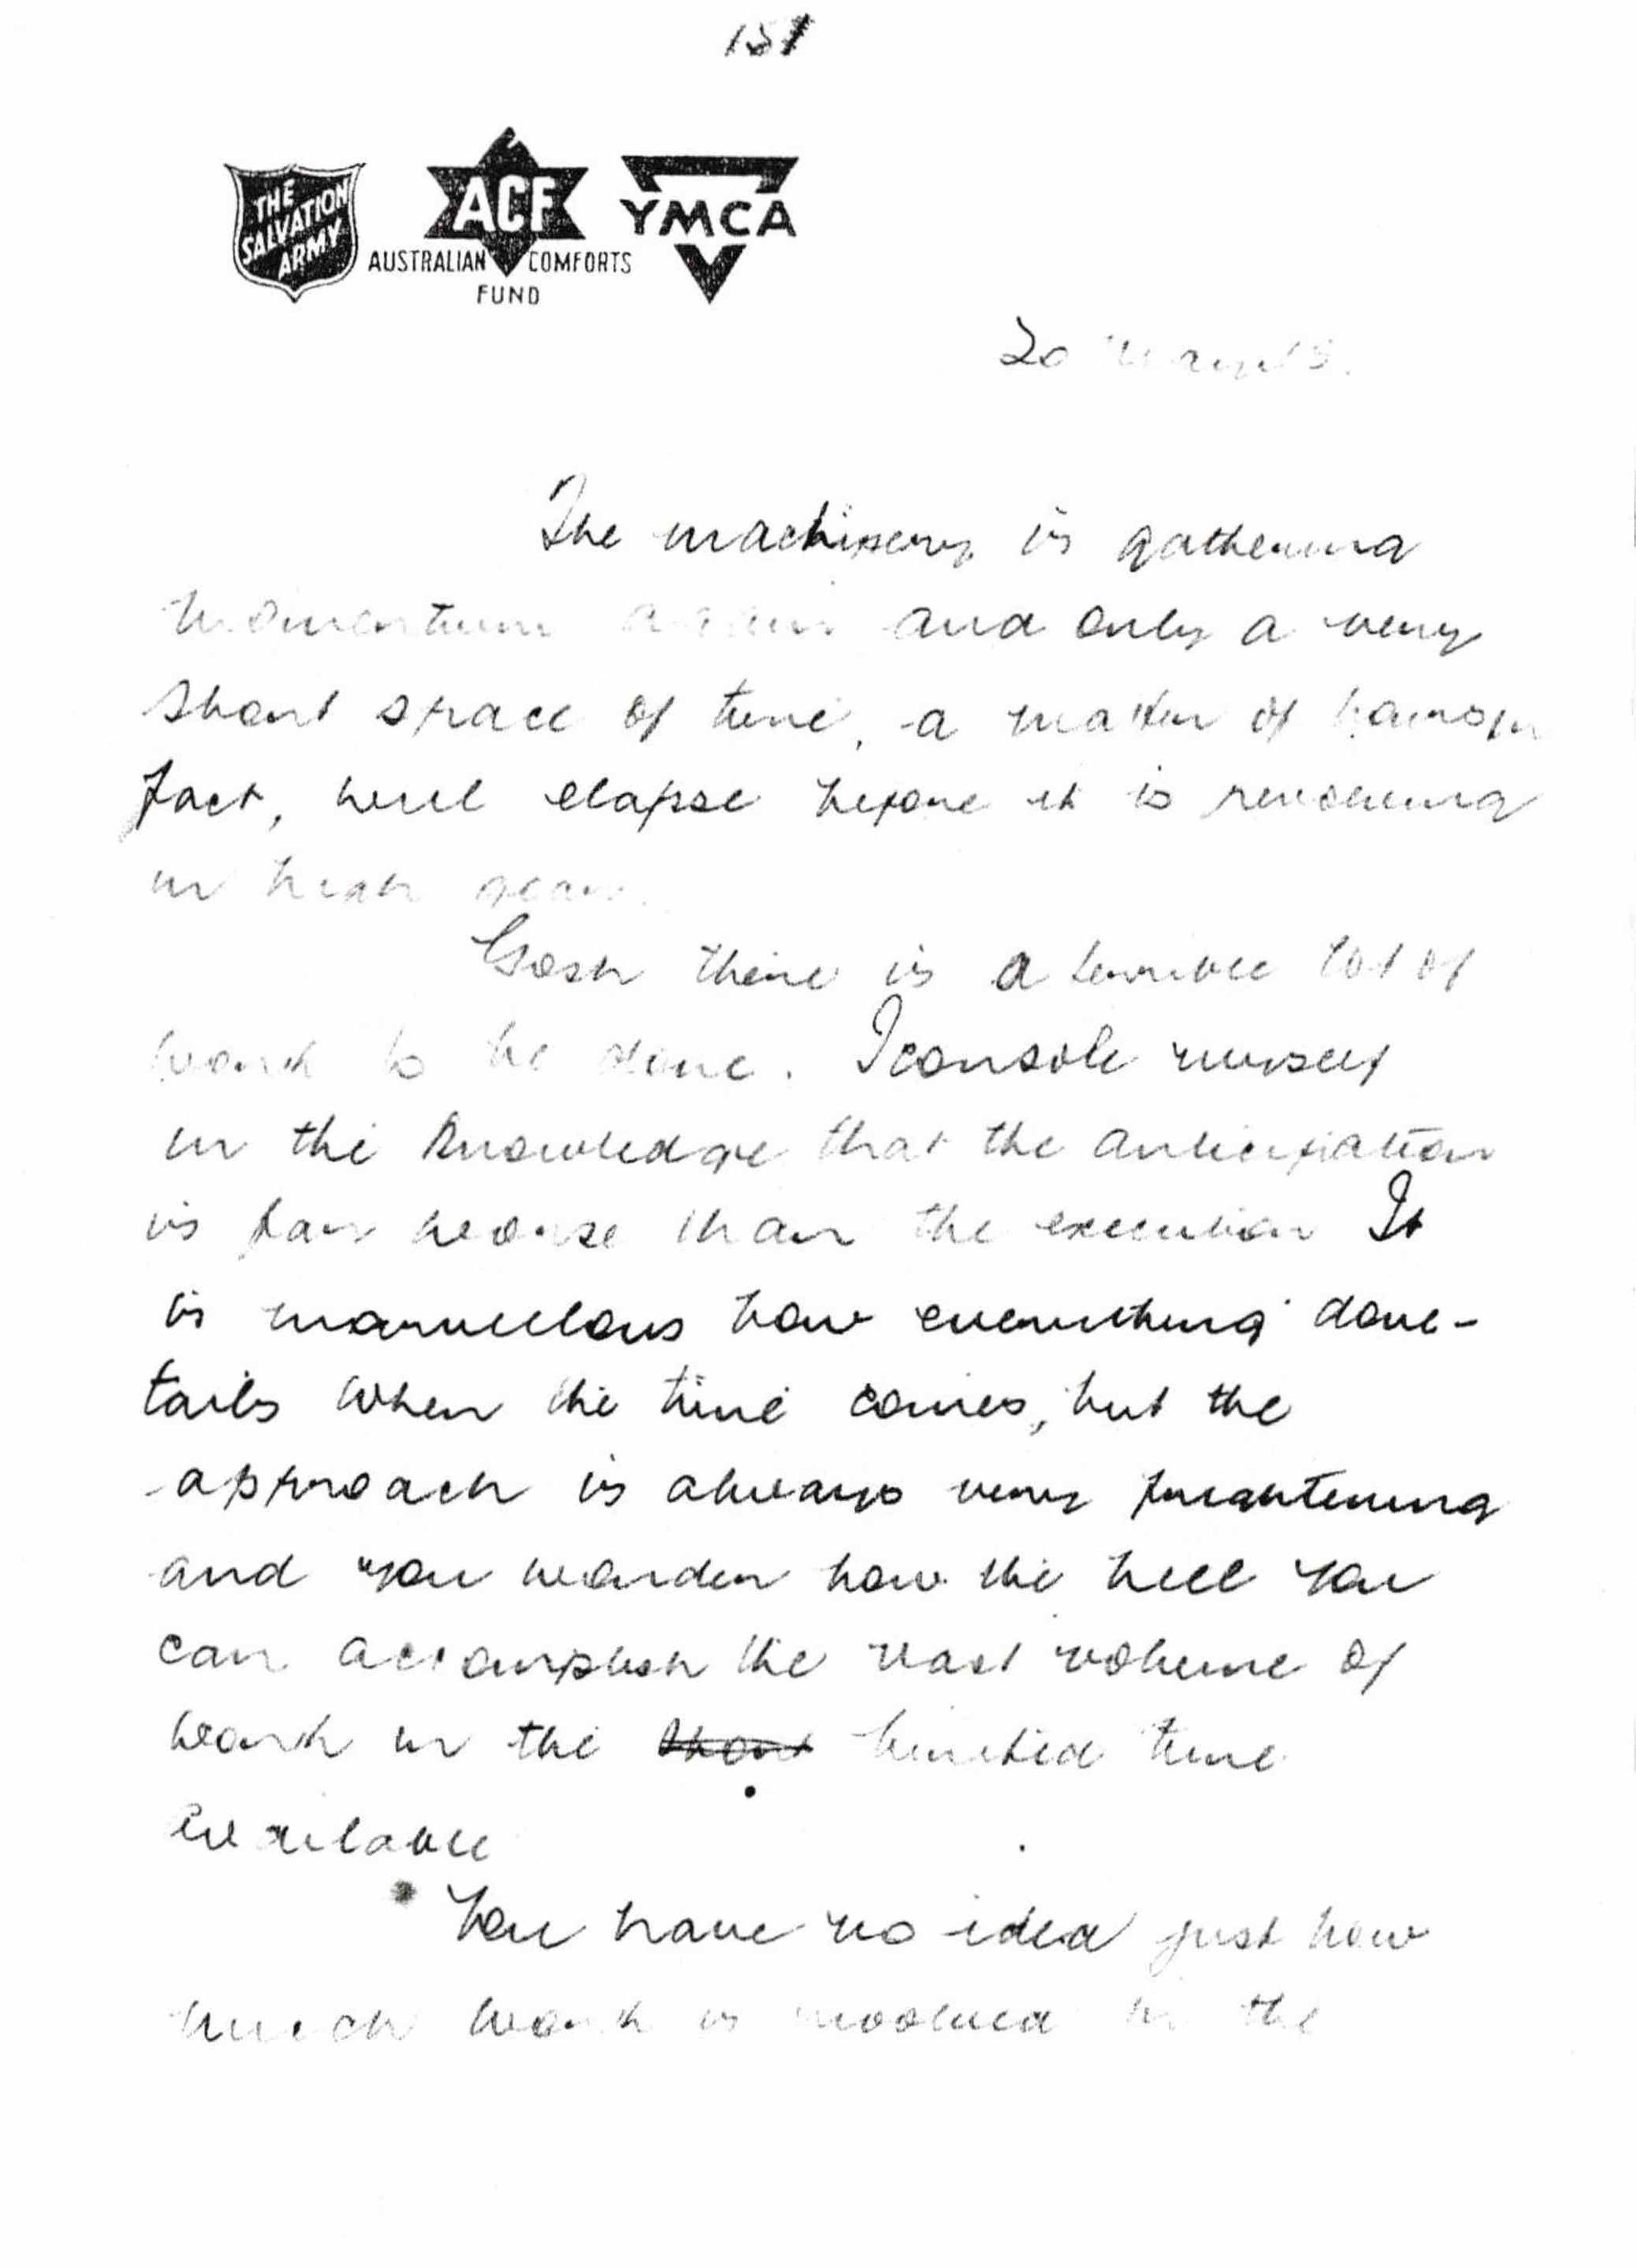 151
THE
SALVATION
ARMY
ACF
AUSTRALIAN COMFORTS
FUND
YMCA
20
The machinery is gathering
momentum again and only a very
short space of time, a matter of hours in
fact, will elapse before it is revolving
in high gear.
Gosh there is a terrible lot of
work to be done. I console myself
in the knowledge that the anticipation
is far worse than the execution It
is marvellous how everything dove-
tails when the time comes, but the
approach is always very frightening
and you wonder how the hell you
can accomplish the vast volume of
work in the short limited time
available
You have no idea just how
much work is involved in the